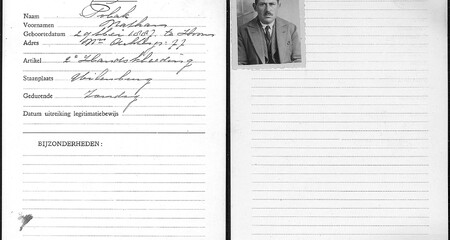 Naam Polak
Voornamen Nathan
Geboortedatum 29 Mei 1887. te
Adres 77
Artikel 2e Handskleeding
Staanplaats Uilenburg
Gedurende Zondag
Datum uitreiking legitimatiebewijs
BIJZONDERHEDEN: